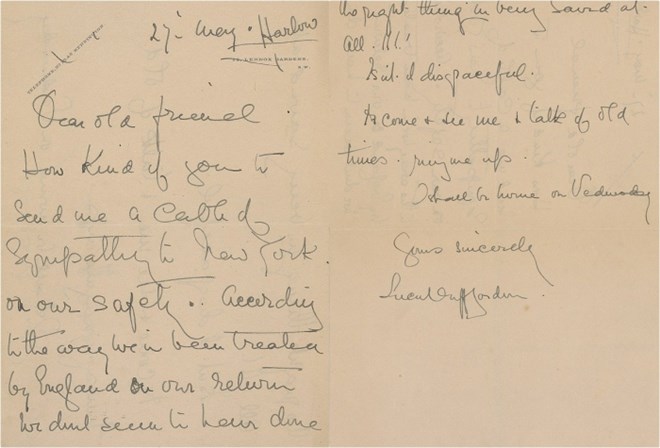 27. May. Harlow
Dear old friend.
How kind of you to
send me a cable of
sympathy to New York.
on our safety.. According
to the way we've been treated
by England on our return
we don't seem to have done
the right thing in being saved at-
all.!!!!
Isn't it disgraceful.
to come & see me & talk of old
times. ring me up.
I shall be home on Wednesday
Yours sincerely
Lucile Duff Gordon.